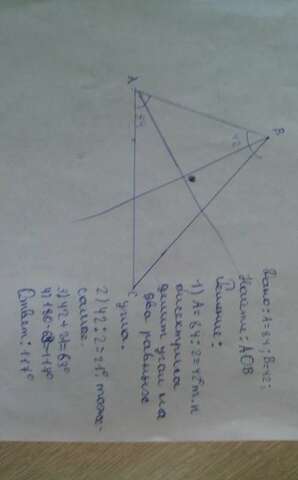 A
B
C
84
42
Дано: A=84; B=42;
Найти: AOB
Решение:
1) A=84:2=42° т.к
биссектриса
делит угол на
два равных
угла.
2) 42:2=21° тоже
самое.
3) 42+21=63°
4) 180-63=117°
Ответ: 117°